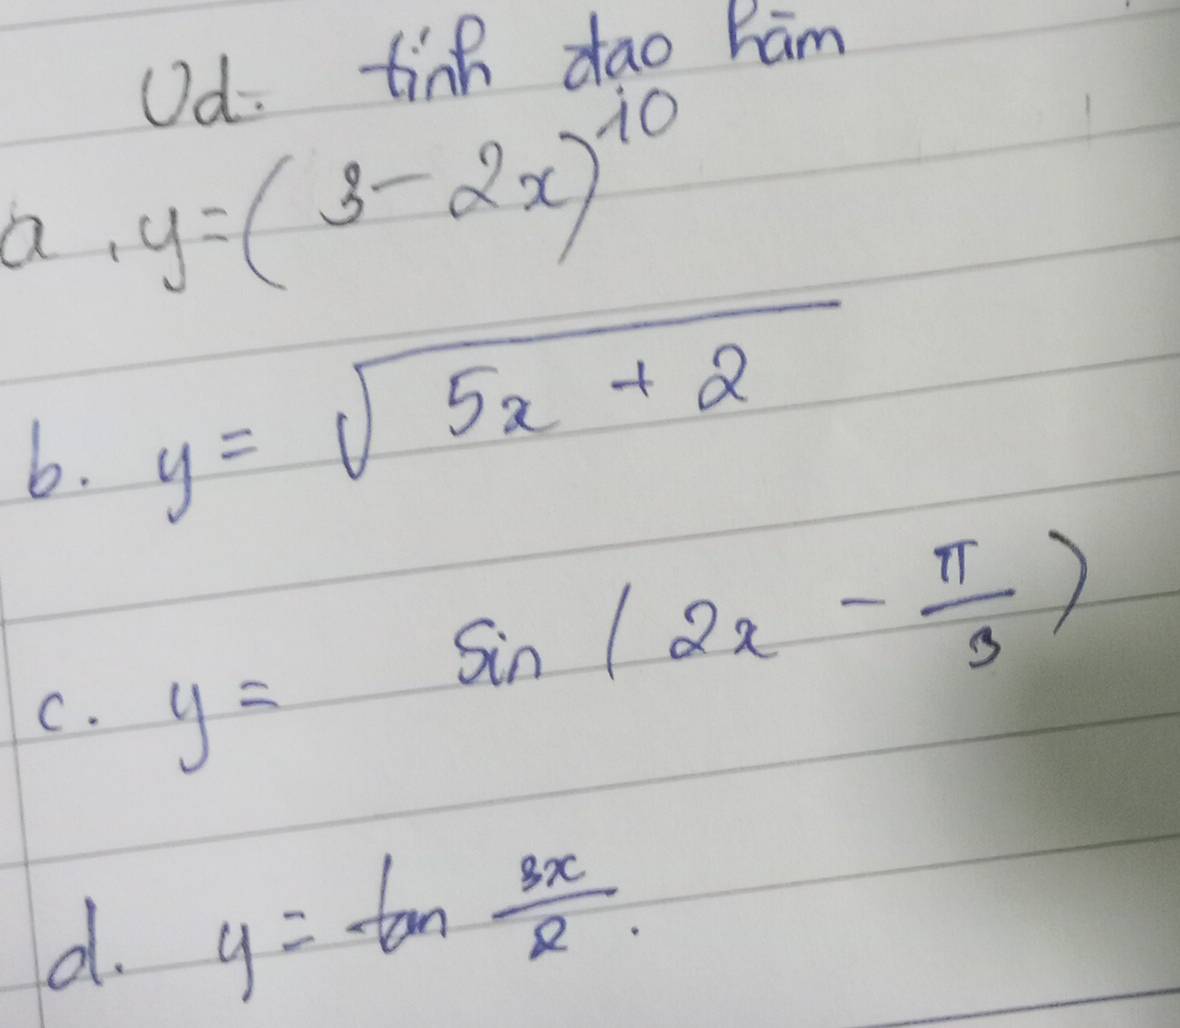 Vd: tính đạo hàm
a, y = (3 - 2x)^10
b. y = √(5x + 2)
c. y = sin (2x - π/3)
d. y = tan 3x/2.